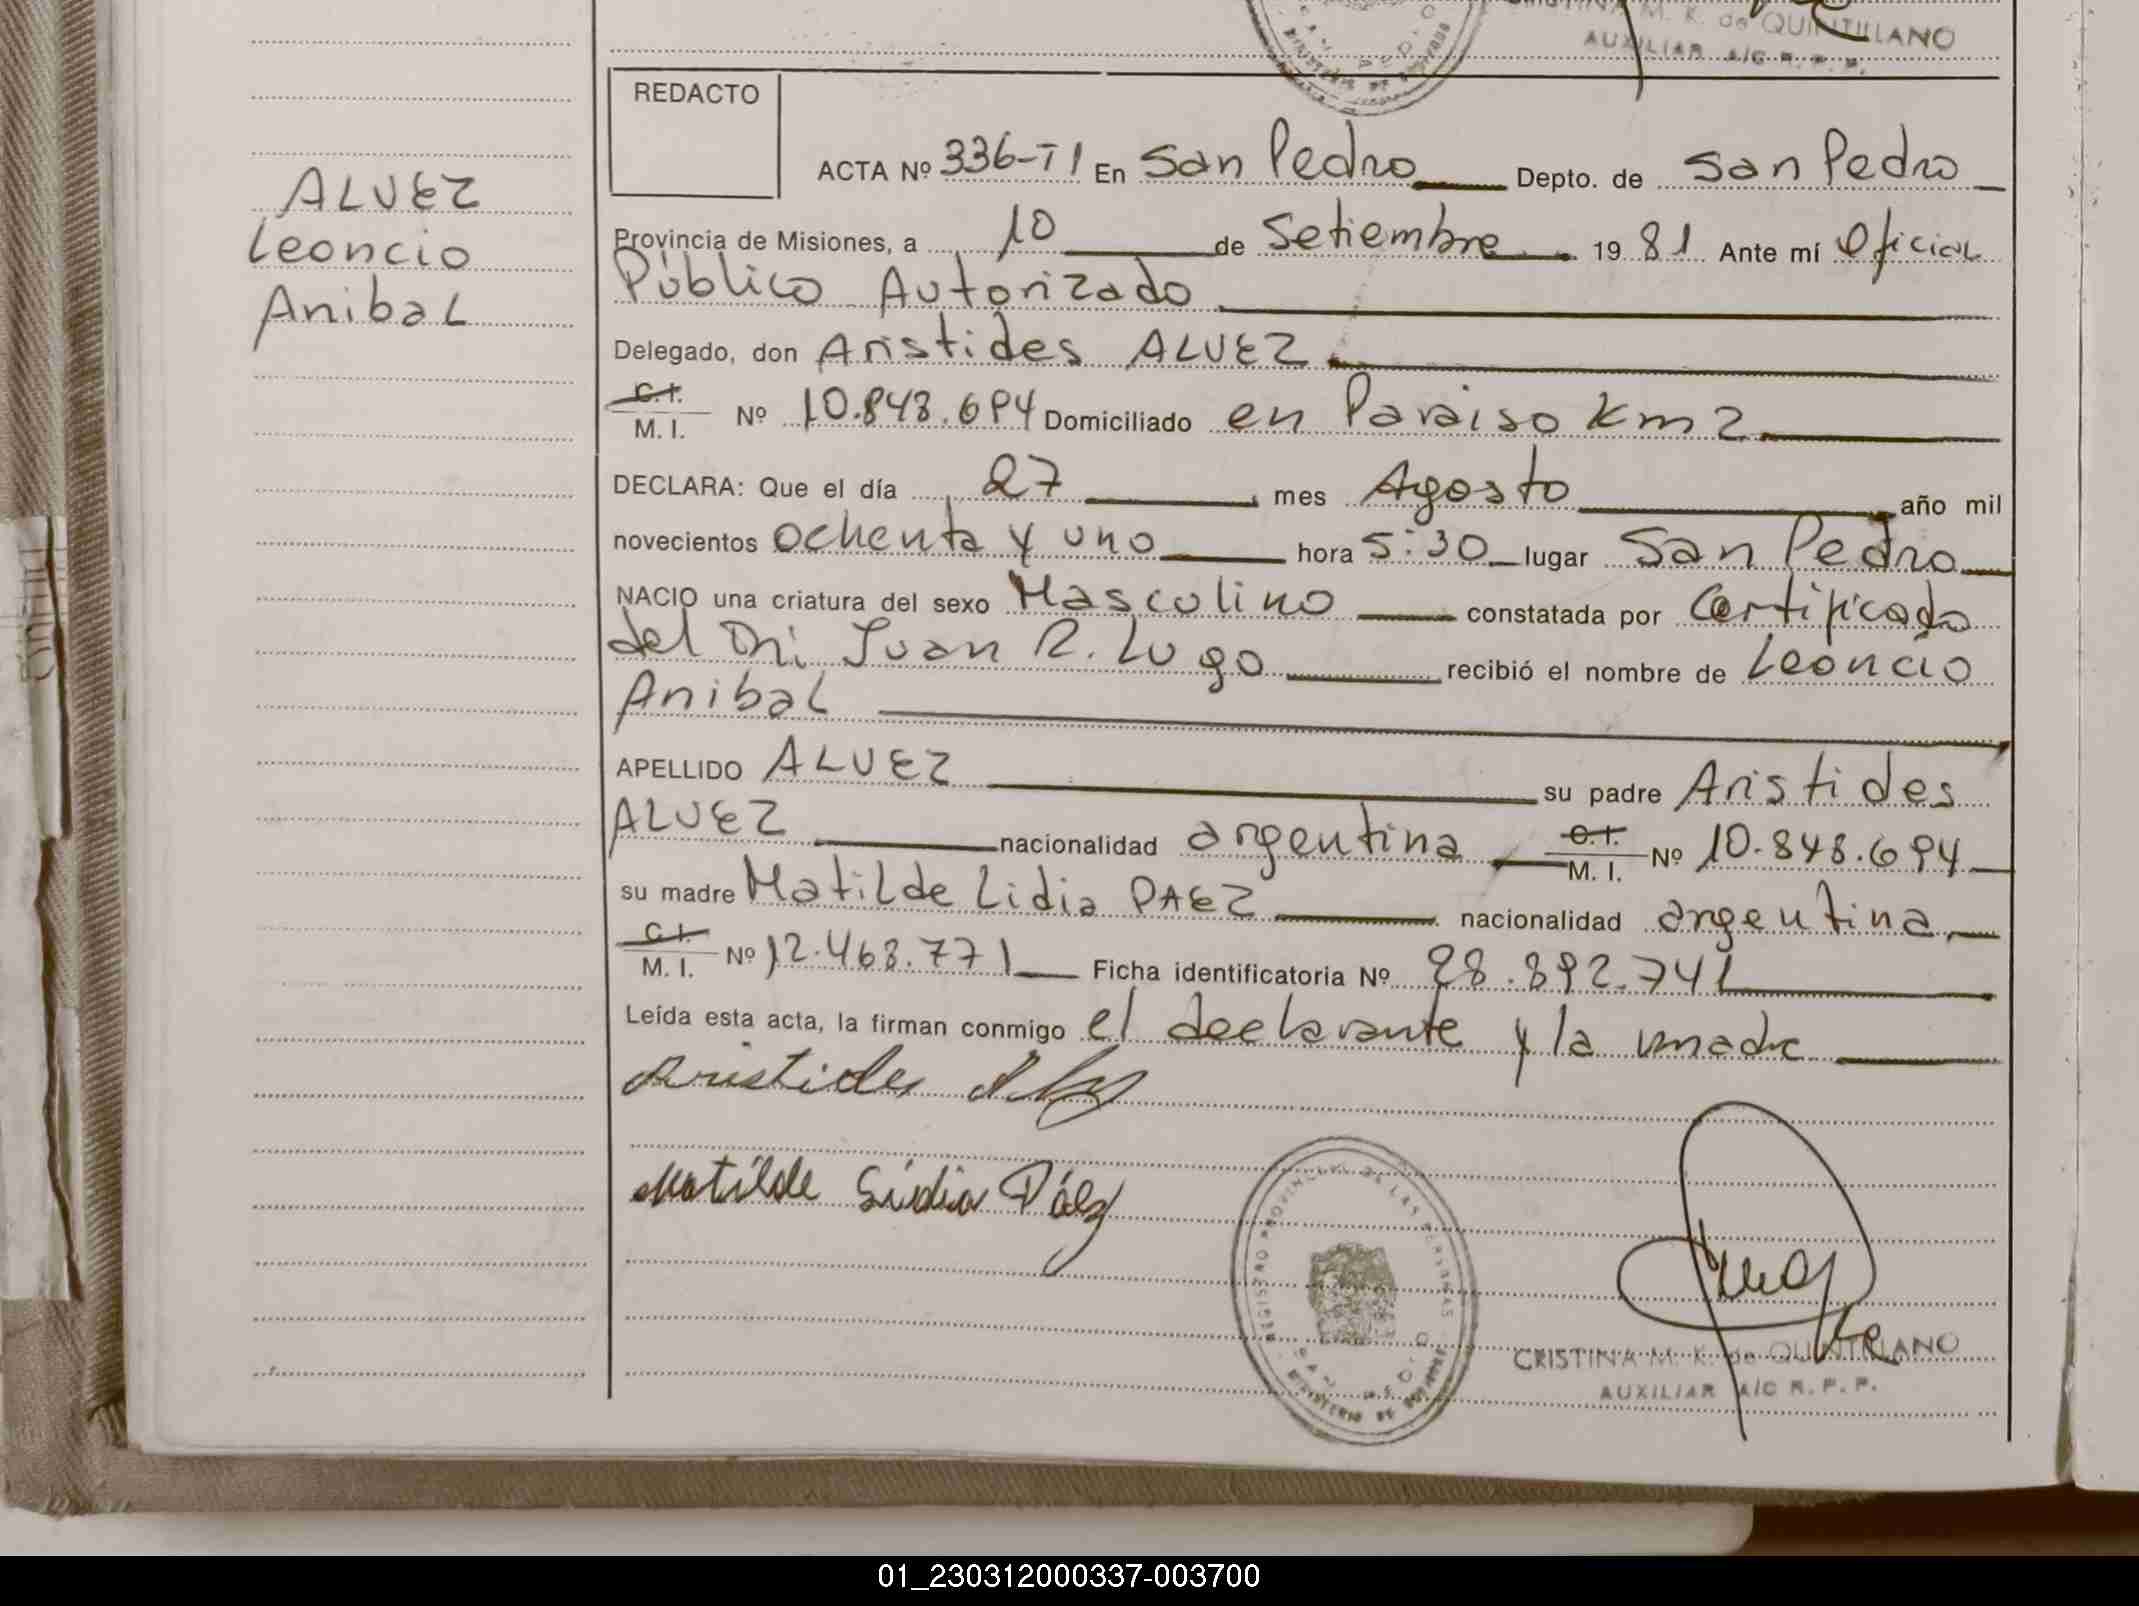 CRISTINA M. K. de QUINTILLANO
AUXILIAR A/C R. P. P.
REDACTO
ALVEZ
Leoncio
Anibal
ACTA Nº 336-T1 En San Pedro Depto. de San Pedro
Provincia de Misiones, a 10 de Setiembre 19 81 Ante mí Oficial
Público Autorizado
Delegado, don Aristides ALVEZ
C.I.
M. I. Nº 10.848.694 Domiciliado en Paraiso Km 2
DECLARA: Que el día 27 mes Agosto año mil
novecientos ochenta y uno hora 5:30 lugar San Pedro
NACIO una criatura del sexo Masculino constatada por Certificado
del Dr: Juan R. Lugo recibió el nombre de Leoncio
Anibal
APELLIDO ALVEZ su padre Aristides
ALVEZ nacionalidad argentina C.I. M. I. Nº 10.848.694
su madre Matilde Lidia PAEZ nacionalidad argentina
C.I.
M. I. Nº 12.468.771 Ficha identificatoria Nº 28.892.741
Leída esta acta, la firman conmigo el declarante y la madre
Aristides
Matilde Lidia Páez
REGISTRO PROVINCIAL DE LAS PERSONAS
MINISTERIO DE GOBIERNO
CRISTINA M. K. de QUINTILLANO
AUXILIAR A/C R. P. P.
01_230312000337-003700